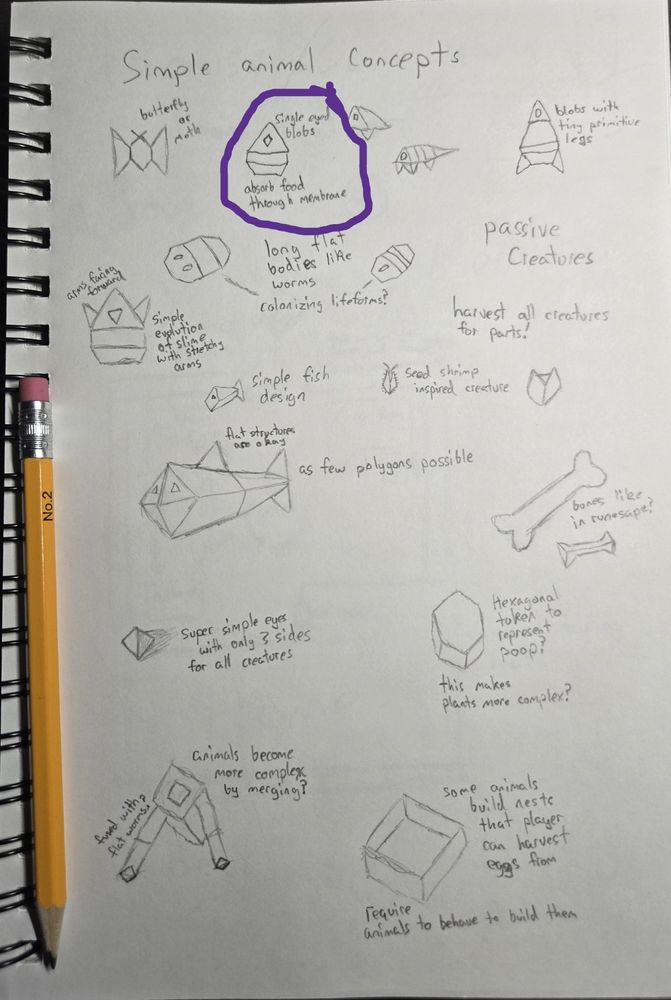 Simple animal Concepts
butterfly
or
moth
Single eyed
blobs
absorb food
through membrane
blobs with
tiny primitive
legs
long flat
bodies like
worms
colonizing lifeforms?
passive
Creatures
harvest all creatures
for parts!
arms facing
forward
simple
evplution
of slime
with stretchy
arms
simple fish
design
seed shrimp
inspired creature
flat structures
are okay
as few polygons possible
bones like
in runesape?
No.2
Super simple eyes
with only 3 sides
for all creatures
Hexagonal
token to
represent
poop?
this makes
plants more complex?
animals become
more complex
by merging?
fused with
flat worms?
Some animals
build nests
that player
can harvest
eggs from
require
animals to behave to build them